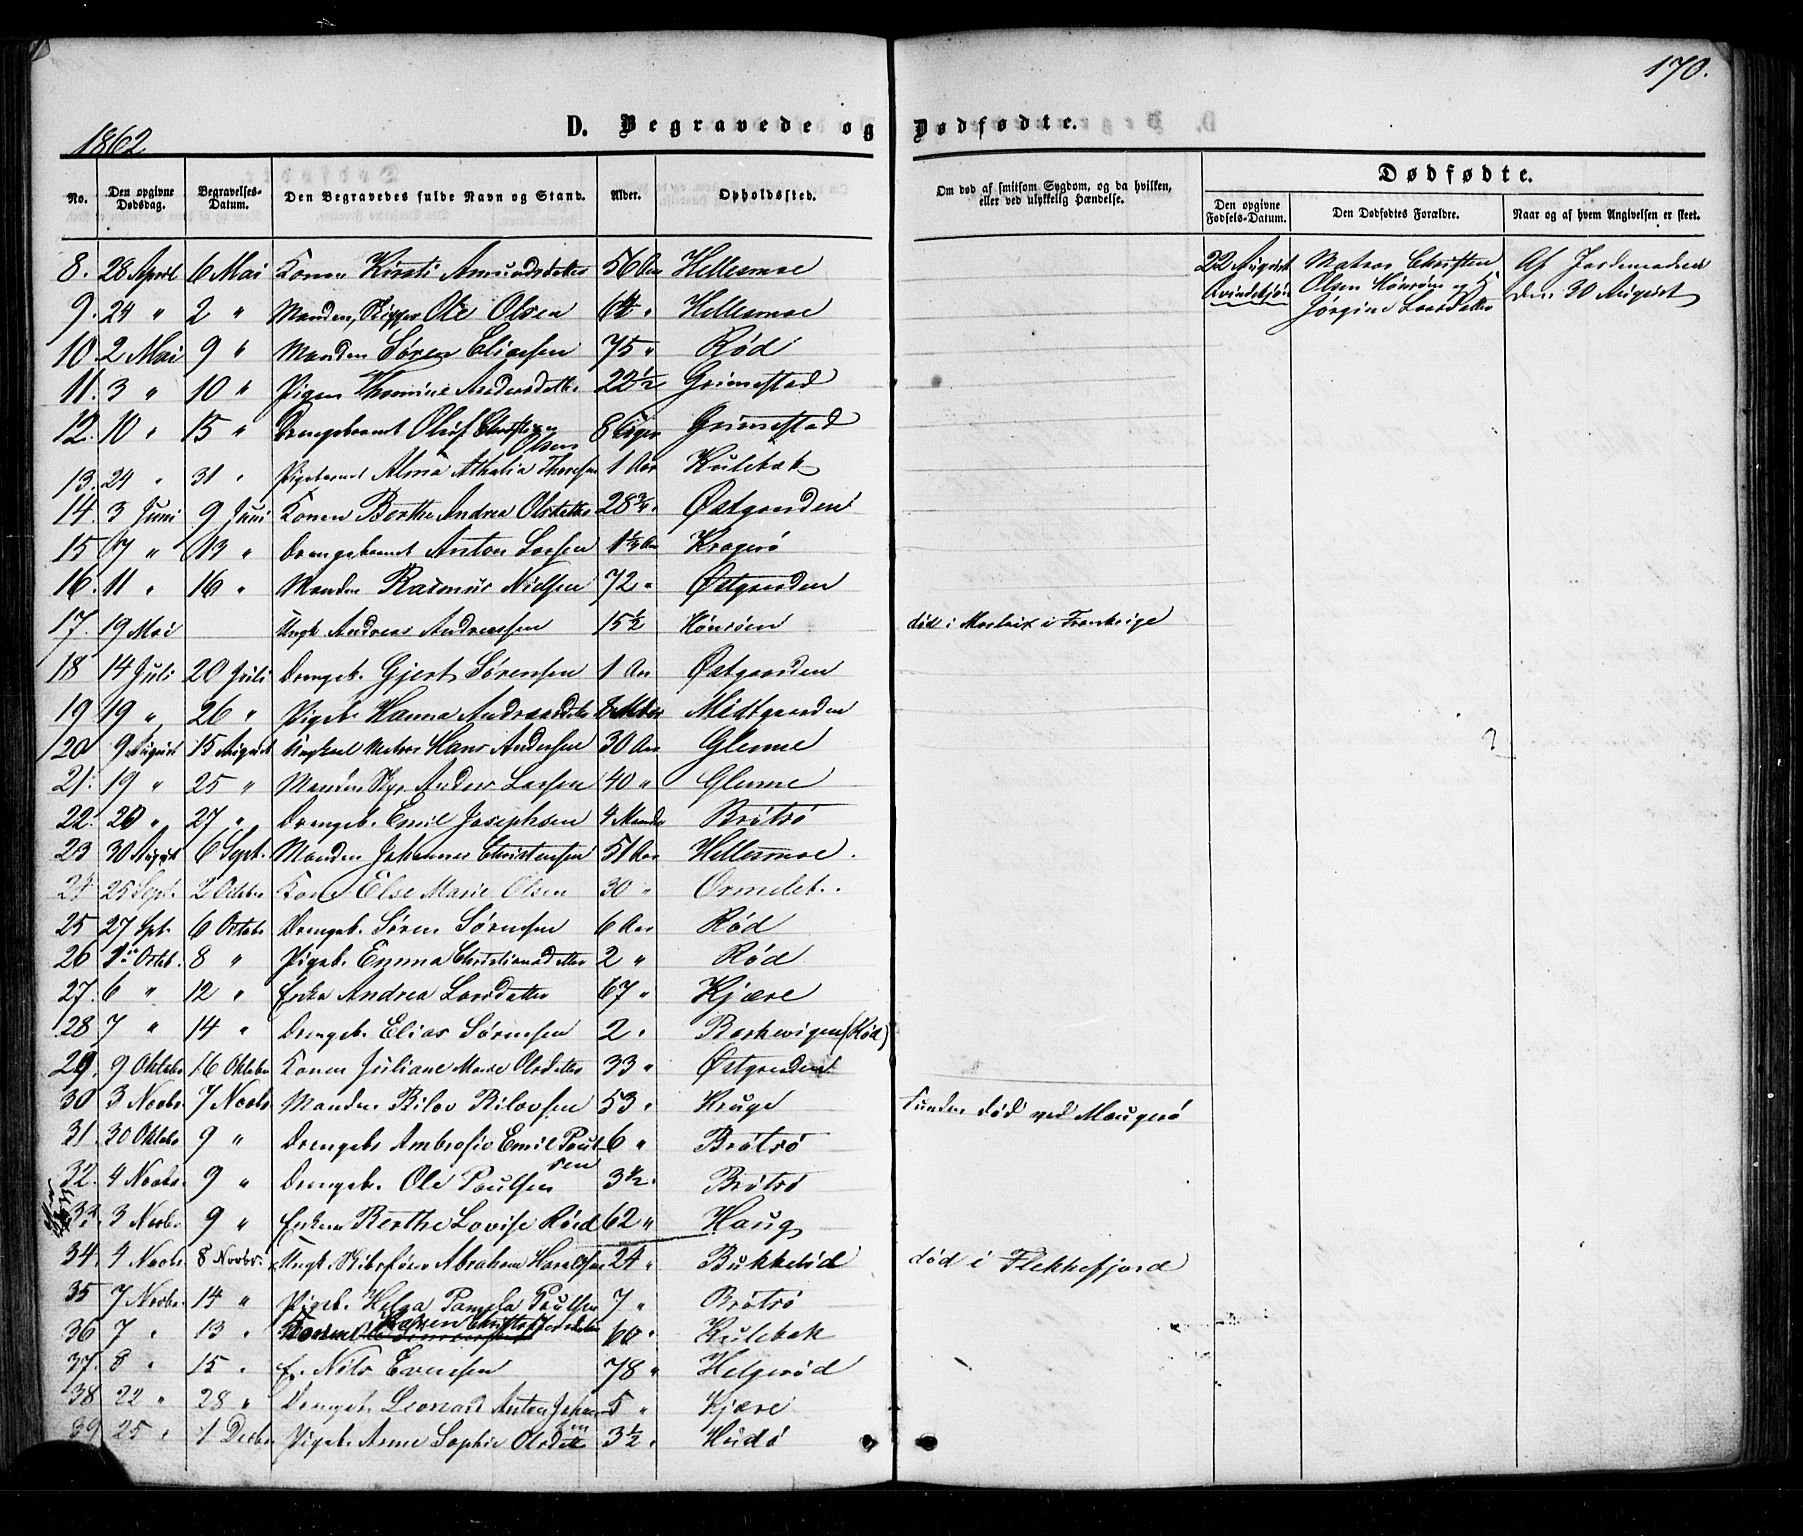 170.
1862
D. Begravede og Dødfødte.
No. Den opgivne Dødsdag. Begravelses-Datum. Den Begravedes fulde Navn og Stand. Alder. Opholdssted. Om død af smitsom Sygdom, og da hvilken, eller ved ulykkelig Hændelse. Dødfødte. Den opgivne Fødsels-Datum. Den Dødfødtes Forældre. Naar og af hvem Angivelsen er skeet.
8. 28 April 6 Mai Konen Kirsti Amundsdatter 56 Aar Hellesmoe 22 August Qvindekjøn Matros Christen Olsen Hønsøen og Jørgine Larsdatter Af Jordemoderen den 30 August
9. 24 " 2 " Manden, Skipper Ole Olsen 64 " Hellesmoe
10. 2 Mai 9 " Manden Søren Eliassen 75 " Rød
11. 3 " 10 " Pigen Thomine Andersdatter 22 1/2 Grimestad
12. 10 " 15 " Drengebarnet Oluf Christian Olsen 8 Uger Grimestad
13. 24 " 31 " Pigebarnet Alma Athalia Thoresen 1 Aar Kulebak
14. 3 Juni 9 Juni Konen Berthe Andrea Olsdatter 28 3/4 " Østgaarden
15 7 " 13 " Drengebarnet Anton Larsen 1 1/2 Aar Kragerø
16. 11 " 16 " Manden Rasmus Nielsen 72 " Østgaarden
17. 19 Mai Ungk. Andreas Andreassen 15 1/2 Hønsøen død i Morlaix i Frankrige
18 14 Juli 20 Juli Drengeb. Gjert Sørensen 1 Aar Østgaarden
19 19 " 26 " Pigeb. Hanna Andreasdatter 8 Mdr Midtgaarden
20 9 August 15 August Ungkarl Matros Hans Andersen 30 Aar Glenne
21. 19 " 25 " Manden Skpr. Anders Larsen 40 " Glenne
22. 20 " 27 " Drengeb. Emil Josephsen 4 Maaneder Brøtsø
23 30 August 6 Sept. Manden Johannes Christensen 51 Aar Hellesmoe.
24. 25 Sept. 2 October Kone Else Marie Olsen 30 " Ormelet.
25 27 Spt. 6 Octobr Drengeb. Søren Sørensen 6 Aar Rød
26 1 Octob. 8 " Pigeb. Emma Christiansdatter 2 " Rød
27. 6 " 12 " Enke Andrea Larsdatter 67 " Kjære
28 7 " 14 " Drengeb. Elias Sørensen 2 " Barkevigen (Rød)
29. 9 Oktober 16 Oktober Konen Juliane Marie Olsdatter 33 " Østgaarden
30 3 Novbr. 7 Novbr. Manden Bilov Bilovsen 53 " Kruge funden død ved Maugerø
31. 30 Oktober 9 " Drengeb. Ambrosio Emil Poulsen 6 " Brøtsø
32. 4 Novbr. 9 " Drengeb. Ole Poulsen 3 1/2 " Brøtsø
33. 3 Novbr. 9 " Enken Berthe Lovise Røed 62 " Haug
34. 4 Novbr 8 Novbr. Ungk. Abraham Haraldsen 24 " Bukkelød død i Flekkefjord
35 7 Novbr. 14 " Pigeb. Helga Pamela Poulsen 7 " Brøtsø
36 7 " 13 " Konen Karen Christoffersdatter 60 " Kulebak
37. 8 " 15 " E. Nils Evensen 78 " Helgerød
38 22 " 28 " Drengeb. Leonard Anton Johansen 5 " Kjære
39 25 " 1 Decbr Pigeb. Anne Sophie Olsdatter 3 1/2 " Hudø